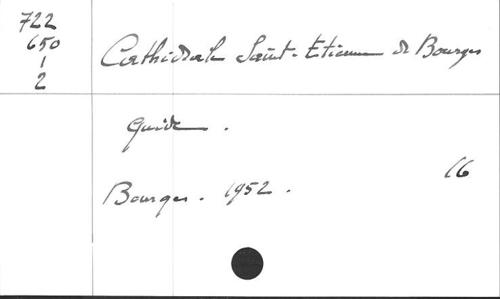 722
650
1
2
Cathédrale Saint-Etienne de Bourges
Guide.
16
Bourges. 1952.